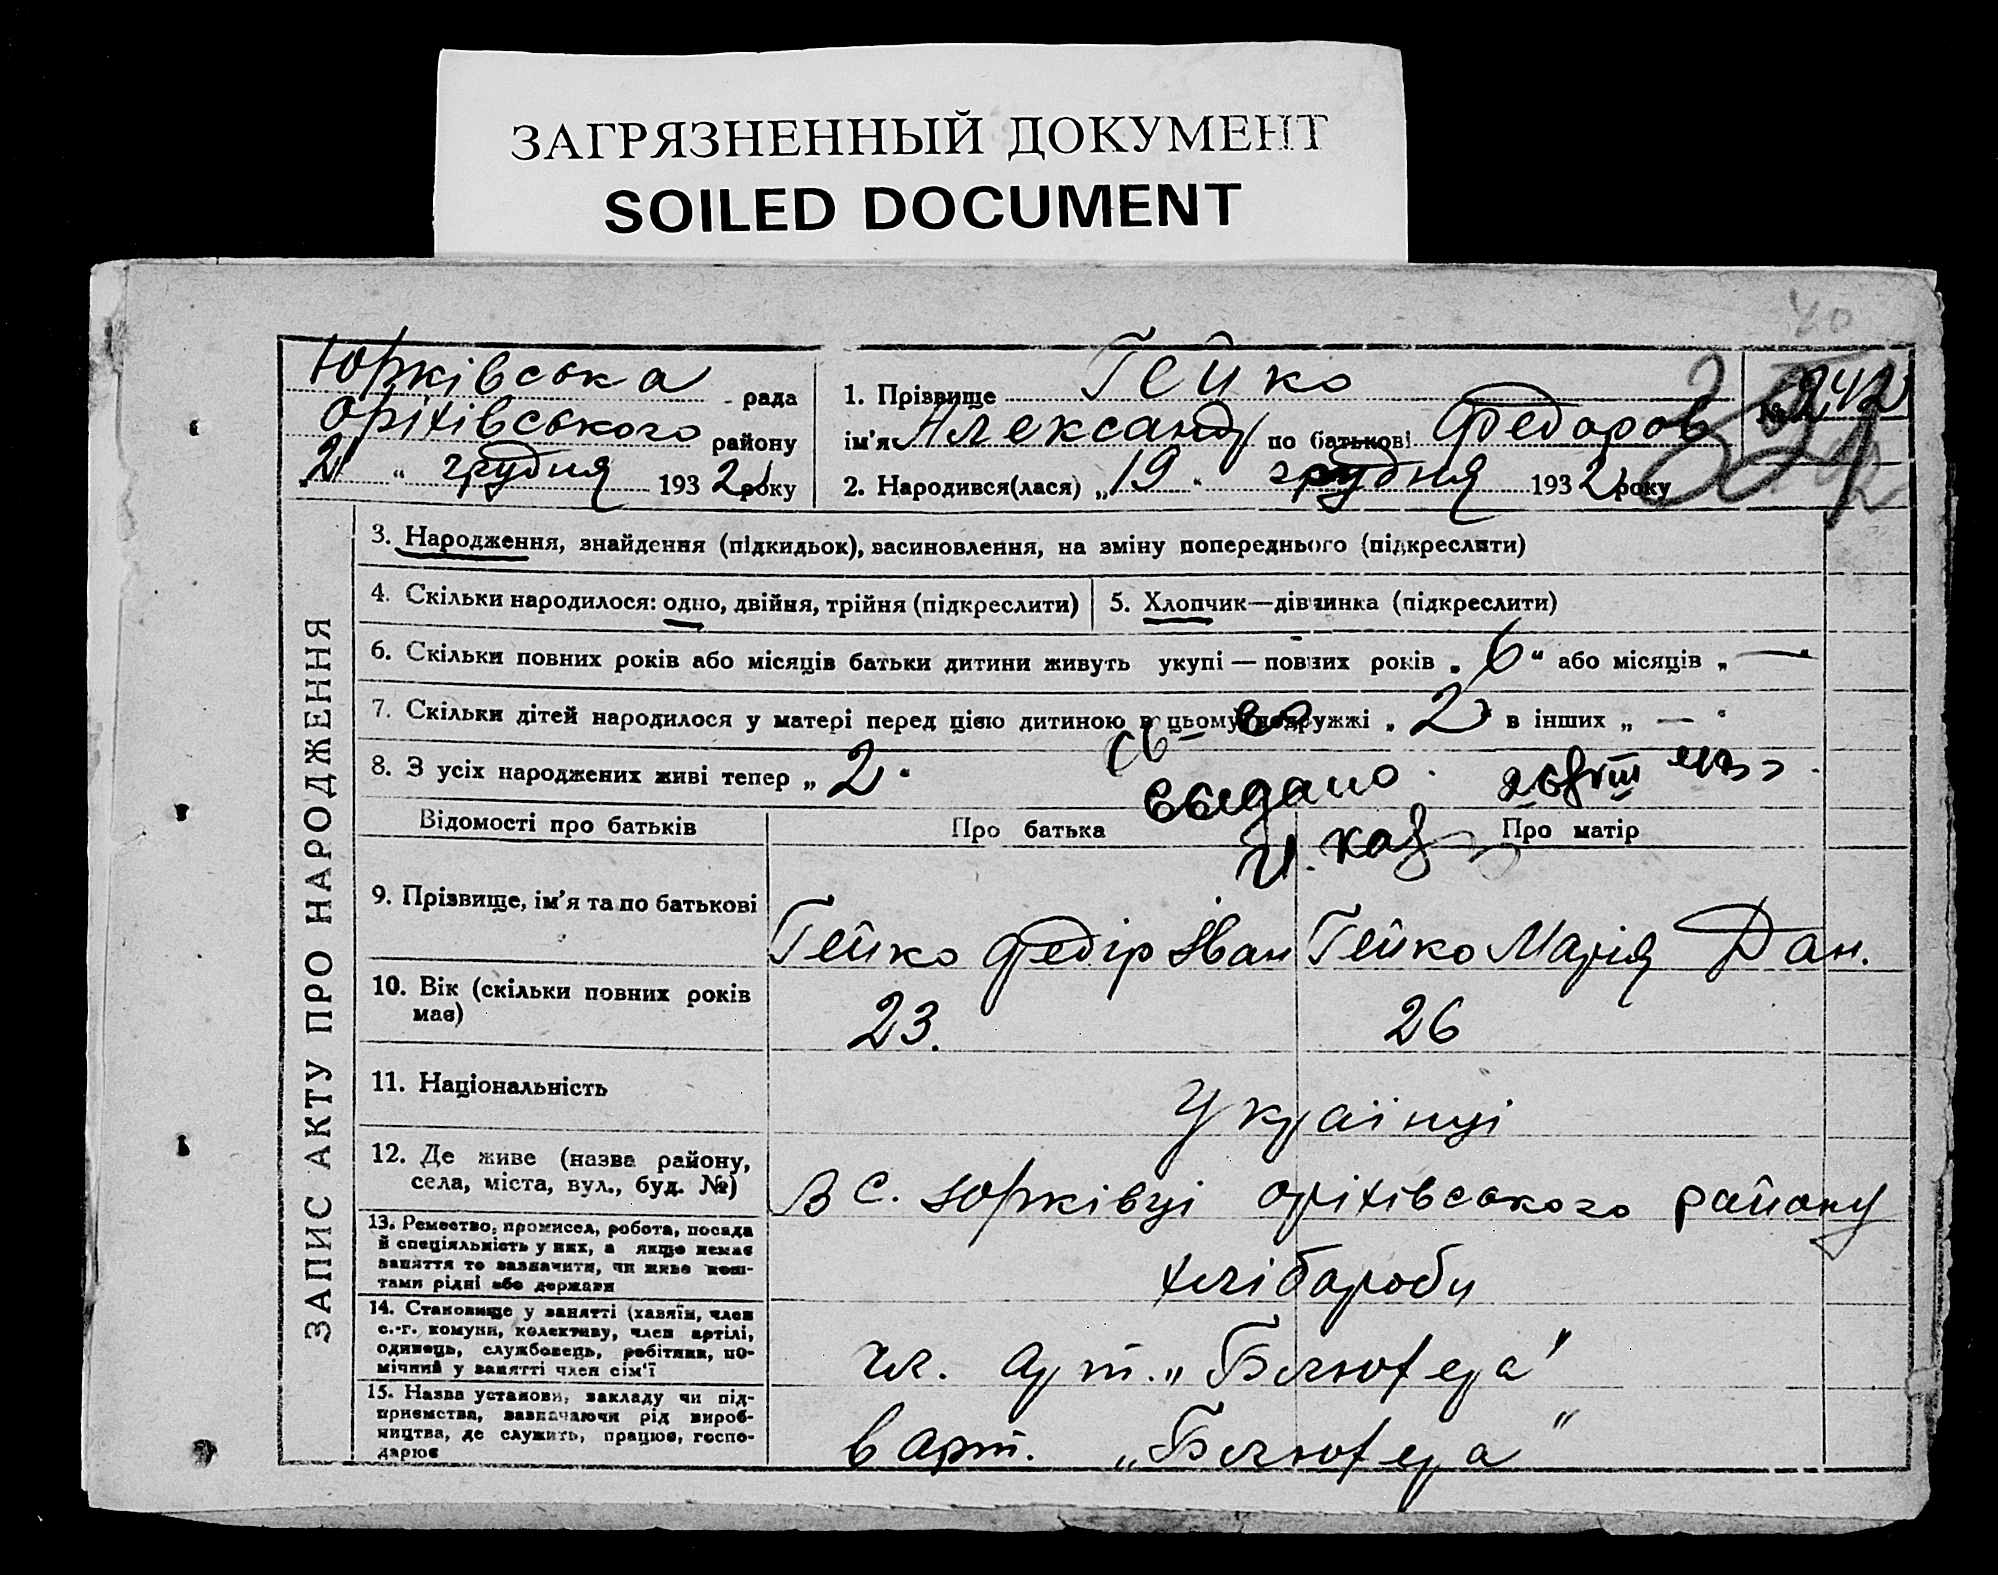 ЗАГРЯЗНЕННЫЙ ДОКУМЕНТ
SOILED DOCUMENT
Юрківська рада
Оріхівського району
"2" грудня 1932 року
1. Прізвище Гейко
ім'я Александр по батькові Федоров
2. Народився(лася) „19" грудня 1932 року
№ 242
ЗАПИС АКТУ ПРО НАРОДЖЕННЯ
3. Народження, знайдення (підкидьок), засиновлення, на зміну попереднього (підкреслити)
4. Скільки народилося: одно, двійня, трійня (підкреслити)
5. Хлопчик—дівчинка (підкреслити)
6. Скільки повних років або місяців батьки дитини живуть укупі — повних років „6" або місяців „—"
7. Скільки дітей народилося у матері перед цією дитиною в цьому подружжі „2" в інших „—"
8. З усіх народжених живі тепер „2"
св-во
выдано
Відомості про батьків
Про батька
Про матір
9. Прізвище, ім'я та по батькові
Гейко Федір Іван
Гейко Марія Дан.
10. Вік (скільки повних років має)
23.
26
11. Національність
Українці
12. Де живе (назва району, села, міста, вул., буд. №)
в с. Юрківці Оріхівського району
13. Ремество, промисел, робота, посада
й спеціяльність у них, а якщо немає
заняття то зазначити, чи живе кош-
тами рідні або держави
хлібароби
14. Становище у занятті (хазяїн, член
с.-г. комуни, колективу, член артілі,
одинець, службовець, робітник, по-
мічний у занятті член сім'ї
чл. арт. „Блюхера"
15. Назва установи, закладу чи під-
приємства, зазначаючи рід вироб-
ництва, де служить, працює, госпо-
дарює
в арт. „Блюхера"